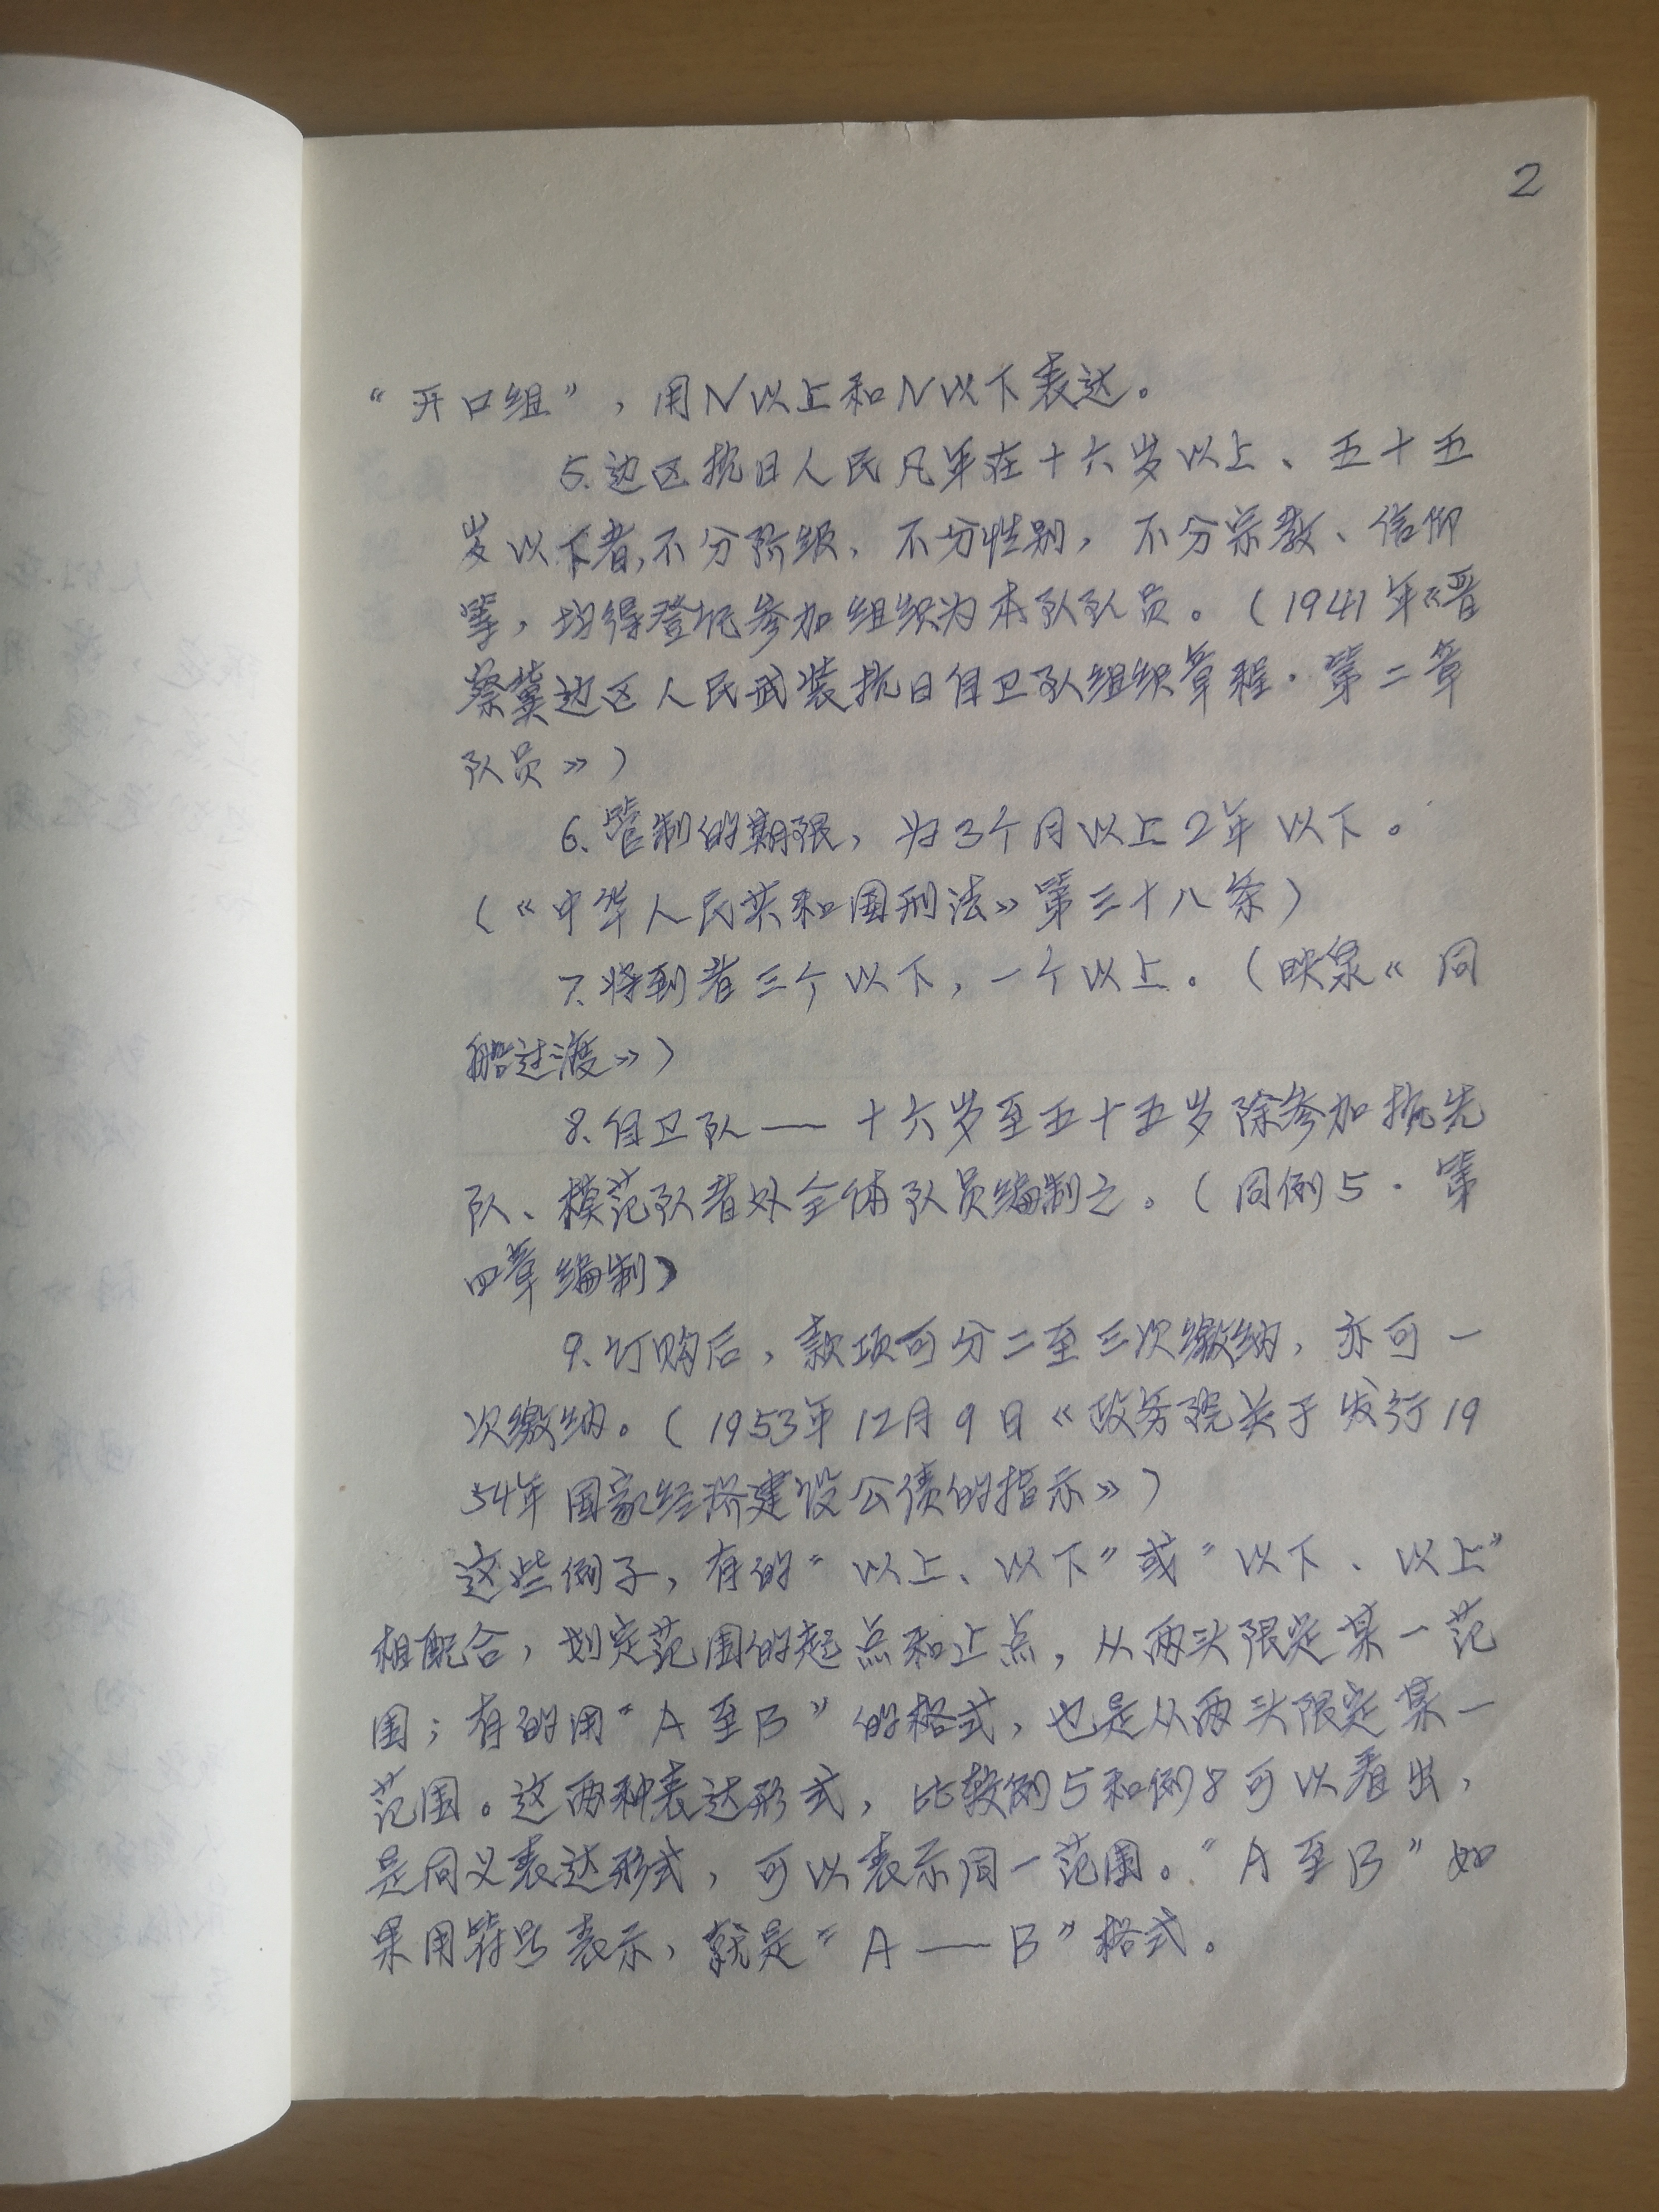 2
“开口组”，用N以上和N以下表达。
5.边区抗日人民凡年在十六岁以上、五十五
岁以下者,不分阶级，不分性别，不分宗教、信仰
等，均得登记参加组织为本队队员。（1941年《晋
察冀边区人民武装抗日自卫队组织章程·第二章
队员》）
6.管制的期限，为3个月以上2年以下。
（《中华人民共和国刑法》第三十八条）
7.将到者三个以下，一个以上。（映泉《同
船过渡》）
8.自卫队——十六岁至五十五岁除参加抗先
队、模范队者外全体队员编制之。（同例5·第
四章编制）
9.订购后，款项可分二至三次缴纳，亦可一
次缴纳。（1953年12月9日《政务院关于发行19
54年国家经济建设公债的指示》）
这些例子，有的“以上、以下”或“以下、以上”
相配合，划定范围的起点和止点，从两头限定某一范
围；有的用“A至B”的格式，也是从两头限定某一
范围。这两种表达形式，比较例5和例8可以看出，
是同义表达形式，可以表示同一范围。“A至B”如
果用符号表示，就是“A——B”格式。